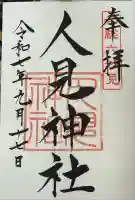 奉拝
人見神社
令和七年九月十七日